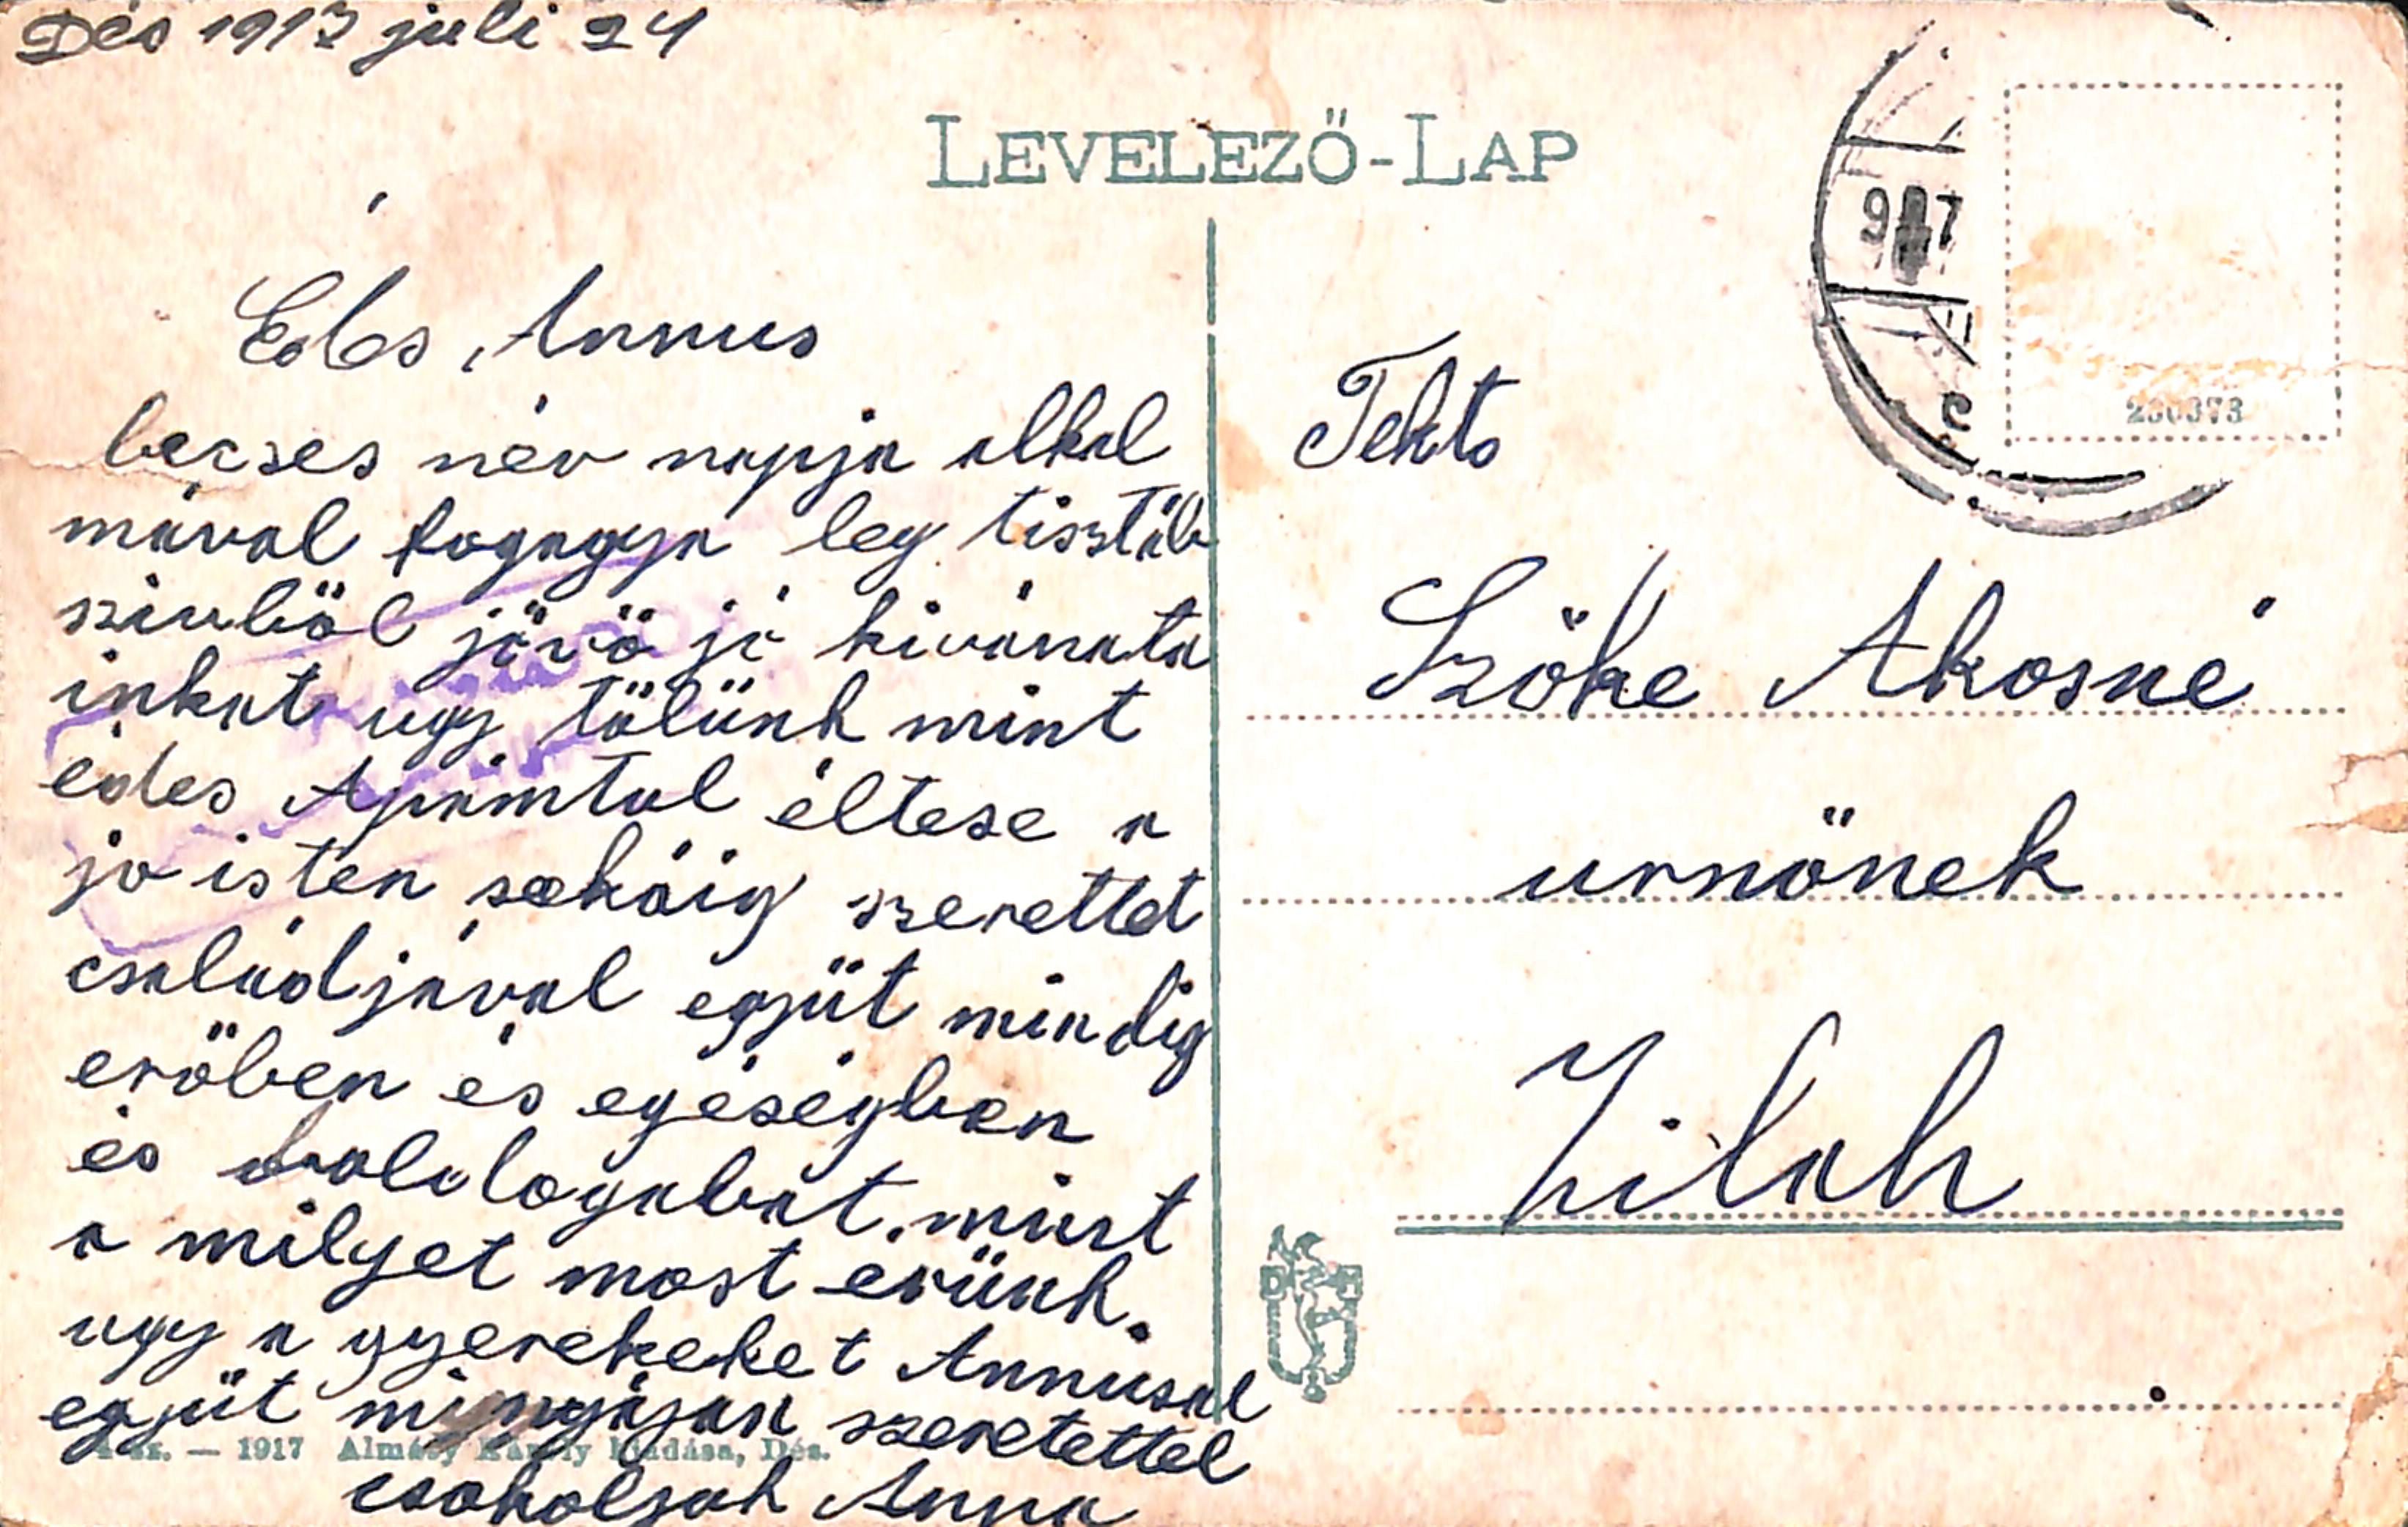 Dés 1917 juli 24
LEVELEZŐ-LAP
917
230373
Édes Annus
becses név napja alkal
mával fogagya leg tisztáb
szivböl jövö jó kivánata
inkat ugy tölünk mint
édes Apámtul éltese a
jo isten sokáig szerettet
családjával együt mindig
eröben és egéségben
és boldogabat mint
a milyet most érünk.
ugy a gyerekeket Annusal
együt minyájan szeretettel
csokoljak Anna
Tekts
Szöke Akosné
urnönek
Zilah
sz. — 1917 Almásy Károly kiadása, Dés.